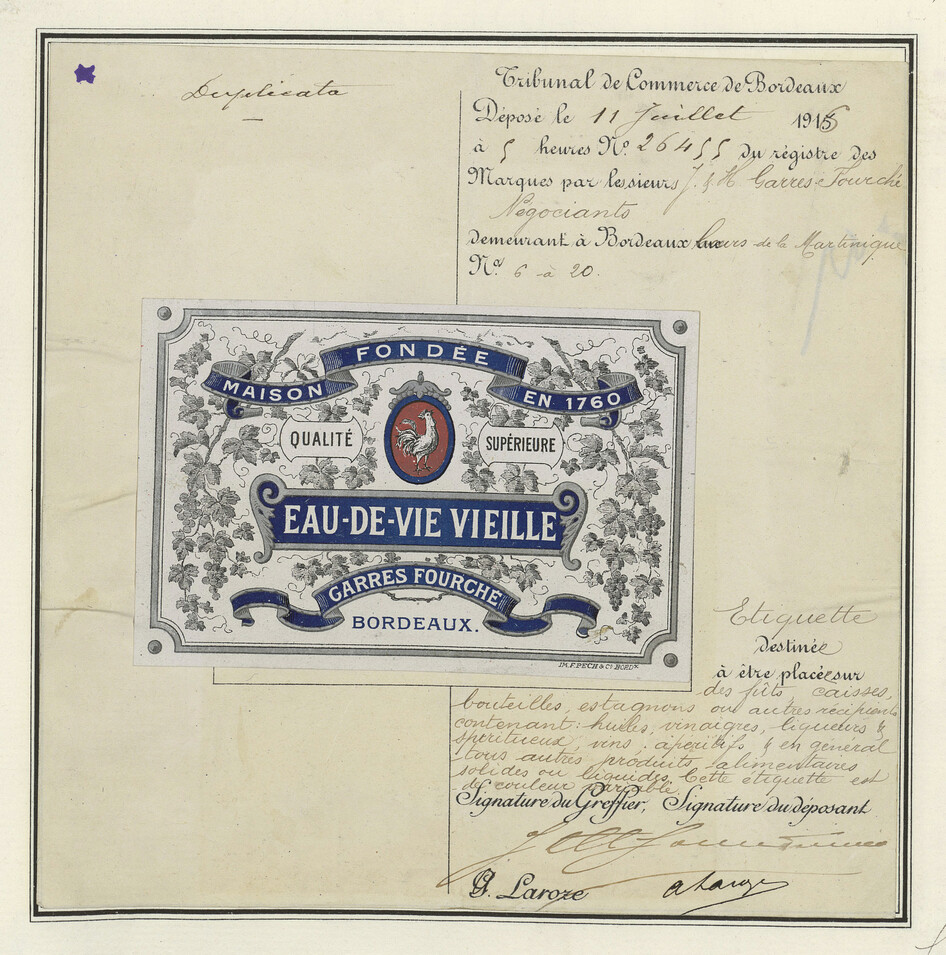 Duplicata
Tribunal de Commerce de Bordeaux
Déposé le 11 Juillet 1916
à 5 heures No. 26455 du régistre des
Marques par les sieurs J. & H Garres-Fourché
Négociants
demeurant à Bordeaux Cours de la Martinique
Nos 6 à 20.
MAISON FONDÉE EN 1760
QUALITÉ SUPÉRIEURE
EAU-DE-VIE VIEILLE
GARRES FOURCHÉ
BORDEAUX.
IM. F. PECH & Cie BORDx
Etiquette
destinée
à être placée sur
des fûts, caisses,
bouteilles, estagnons ou autres récipients
contenant: huiles, vinaigres, liqueurs &
spiritueux, vins, apéritifs & en général
tous autres produits alimentaires
solides ou liquides. Cette étiquette est
de couleur variable.
Signature du Greffier, Signature du déposant
G. Laroze